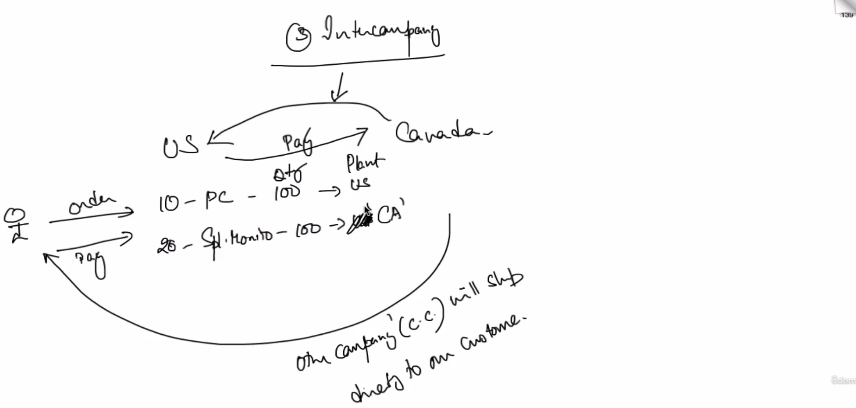 ③ Intercompany
US Pay Canada
Qty Plant
order 10 - PC - 100 → US
Pay 20 - Spl. Monito - 100 → CA'
Other company' (C.C.) will ship
directly to our custome.
139
Udemy